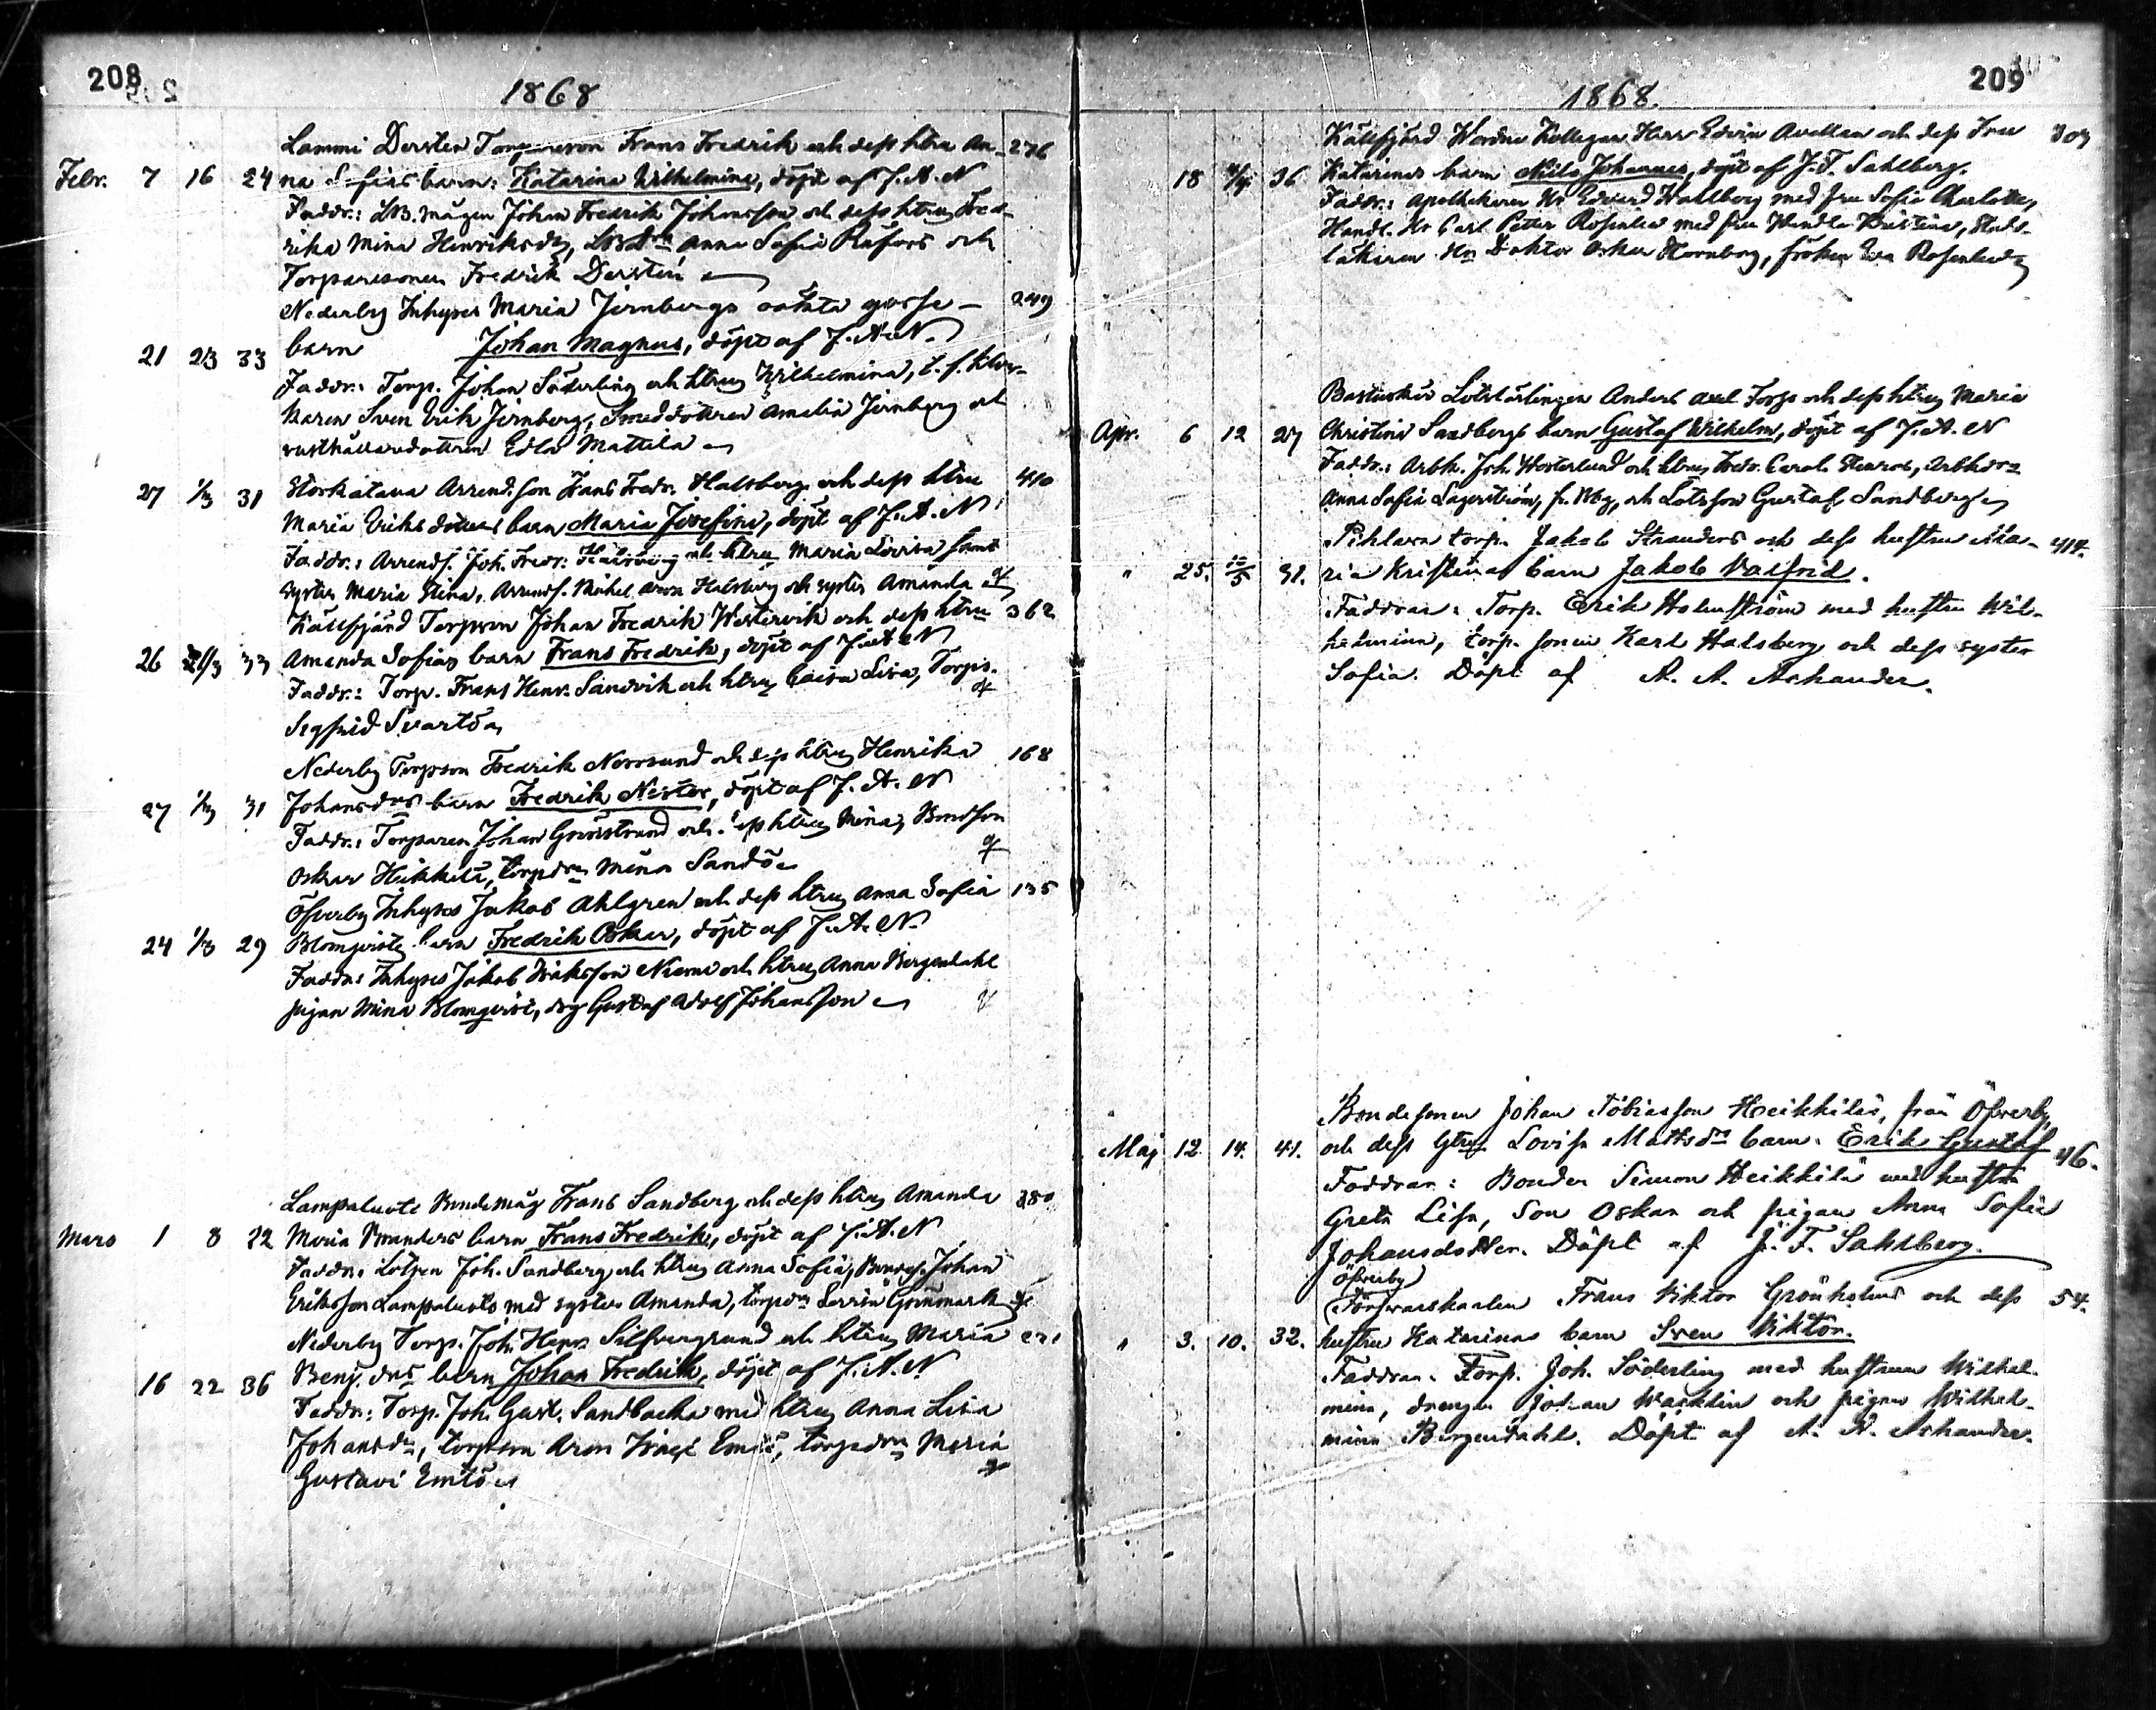 208
1868
Lammi Dersten Torpareson Frans Fredrik och dess htru An- 276
Febr. 7 16 24 na Sofias barn: Katarina Wilhelmina, döpt af J. A. N
Faddr.: mågen Johan Fredrik Johansson och dess htru Fred-
rika Mina Henriksdr, Anna Sofia Räfors och
Torparesonen Fredrik Dersten
Nederby Inhyses Maria Jernbergs oäkta gosse- 249
21 23 33 barn Johan Magnus, döpt af J. A. N.
Faddr.: Torp. Johan Söderling och htru Wilhelmina, t. f. kloc-
karen Sven Erik Jernberg, Smeddottren Amalia Jernberg och
rusthållaredottren Edla Mattila
27 1/3 31 Storkatava Arrend. son Frans Fredr. Halsberg och dess htru 410
Maria Eriksdotters barn Maria Josefina, döpt af J. A. N
Faddr.: Arrends. Joh. Fredr. Halsberg och htru Maria Lovisa samt
syster Maria Stina, Arrends. Mikel Aron Halsberg och syster Amanda
Källfjärd Torpson Johan Fredrik Westervik och dess htru 362
26 33 Amanda Sofias barn Frans Fredrik, döpt af J. A. N
Faddr.: Torp. Frans Henr. Sandvik och htru Caisa Lisa, Torps.
Segfrid Svartö
Nederby Torpson Fredrik Norrsund och dess htru Henrika 168
27 1/3 31 Johansdrs barn Fredrik Nestor, döpt af J. A. N
Faddr.: Torparen Johan Grönstrand och dess htru Mina, Bondson
Oskar Heikkilä, torpdr Mina Sandö
Öfverby Inhyses Jakob Ahlgren och dess htru Anna Sofia 135
24 1/3 29 Blomqvists barn Fredrik Oskar, döpt af J. A. N.
Faddr: Inhyses Jakob Isaksson Niemi och htru Anna Bergendahl
pigan Mina Blomqvist, drg Gustaf Adolf Johansson
Lampaluoto Bondemåg Frans Sandberg och dess htru Amanda 380
Mars 1 8 22 Maria Branders barn Frans Fredrik, döpt af J. A. N
Faddr. Lotsen Joh. Sandberg och htru Anna Sofia, Bondes. Johan
Eriksson Lampaluoto med syster Amanda, torpdr Serrin Grönmark
Nederby Torp. Joh. Henr. Silfvergrund och htru Maria
16 22 36 Benj. drs barn Johan Fredrik, döpt af J. A. N.
Faddr: Torp. Joh. Gust. Sandbacka med htru Anna Lisa
Johansdr, torpson Aron Emtö, torpdr Maria
Gustava Emtö
209
1868.
Källfjärd Wördne Kollegan Herr Edvin Avellan och dess Fru 309
18 36 Katarinas barn Nils Johannes, döpt af J. F. Sahlberg.
Faddr.: Apothekaren Hr Edvard Wahlberg med fru Sofia Charlotta,
Handl. Hr Carl Petter Rosenlew med fru Wendla Kristina, Stads-
läkaren Hr Doktor Oskar Hornborg, fröken Eva Rosenlew
Bastuskär Lotslärlingen Anders Axel Forss och dess htru Maria
Apr. 6 12 27 Christina Sandbergs barn Gustaf Wilhelm, döpt af J. A. N
Faddr.: Arbk. Joh. Westerlund och htru Fredr. Carol. Stenroos, Arbkdr
Anna Sofia Lagerström, fr. Nbg, och Lotsson Gustaf Sandberg
Pihlava torp. Jakob Stranders och dess hustru Ma- 414.
" 25. 10/5 31. ria Kristinas barn Jakob Valfrid.
Faddrar: Torp. Erik Holmström med hustru Wil-
helmina, torp. sonen Karl Halsberg och dess syster
Sofia. Döpt af A. A. Ashander.
Bondesonen Johan Tobiasson Heikkilä, från Öfverby,
Maj 12 14. 41. och dess htru Lovisa Mattsdrs barn. Erik Gustaf 46.
Faddrar: Bonden Simon Heikkilä med hustru
Greta Lisa, Son Oskar och pigan Anna Sofia
Johansdotter. Döpt af J. F. Sahlberg.
Öfverby
Försvarskarlen Frans Viktor Grönholms och dess 54.
" 3. 10. 32. hustru Katarinas barn Sven Viktor.
Faddrar. Torp. Joh. Söderling med hustrun Wilhel-
mina, drängen Johan Wacklin och pigan Wilhel-
mina Bergendahl. Döpt af A. A. Ashander.